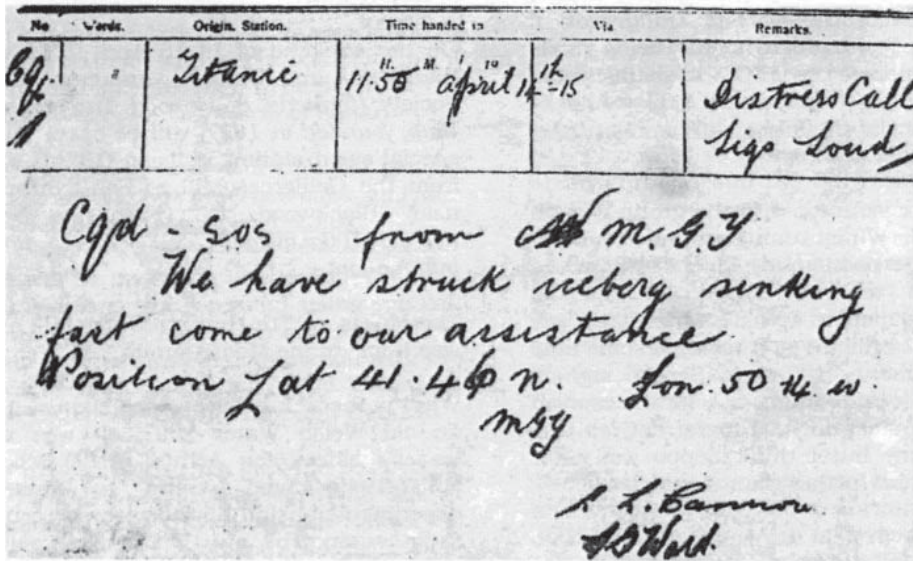 No. Words. Origin. Station. Time handed in Via Remarks.
H. M.
Titanic 11.50 April 14th-15 Distress Call
Sigs Loud
Cqd - Sos from M.G.Y
We have struck iceberg sinking
fast come to our assistance
Position Lat 41.46 n. Lon. 50.14 w.
MGY